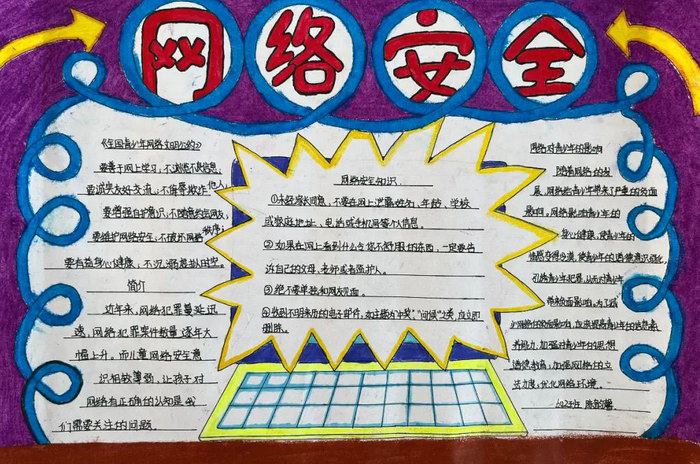 网络安全
《全国青少年网络文明公约》
要善于网上学习,不浏览不良信息,
要诚实友好交流,不侮辱欺诈他人,
要增强自护意识,不随意约会网友,
要维护网络安全,不破坏网络秩序,
要有益身心健康,不沉溺虚拟时空。
简介
近年来,网络犯罪蔓延迅
速,网络犯罪案件数量逐年大
幅上升。而儿童网络安全意
识相较薄弱,让孩子对
网络有正确的认知是我
们需要关注的问题。
网络安全知识
①未经家长同意,不要在网上泄露姓名、年龄、学校
或家庭地址、电话或手机网等个人信息。
②如果在网上看到什么令您不舒服的东西,一定要告
诉自己的父母、老师或者监护人。
③绝不要单独和网友见面。
④收到不明来历的电子邮件,如主题为“中奖”、“问候”之类,应立即
删除。
网络对青少年的影响
随着网络的发
展,网络给青少年带来了严重的负面
影响,网络影响青少年的
身心健康,使青少年的
情感变得冷漠,使青少年的道德意识弱化,
引发青少年犯罪,从而对青少年
带来负面影响,为了减
少网络的负面影响,加强提高青少年的信息素
养能力,加强对青少年的思想
道德教育,加强网络的立
法力度,优化网络环境。